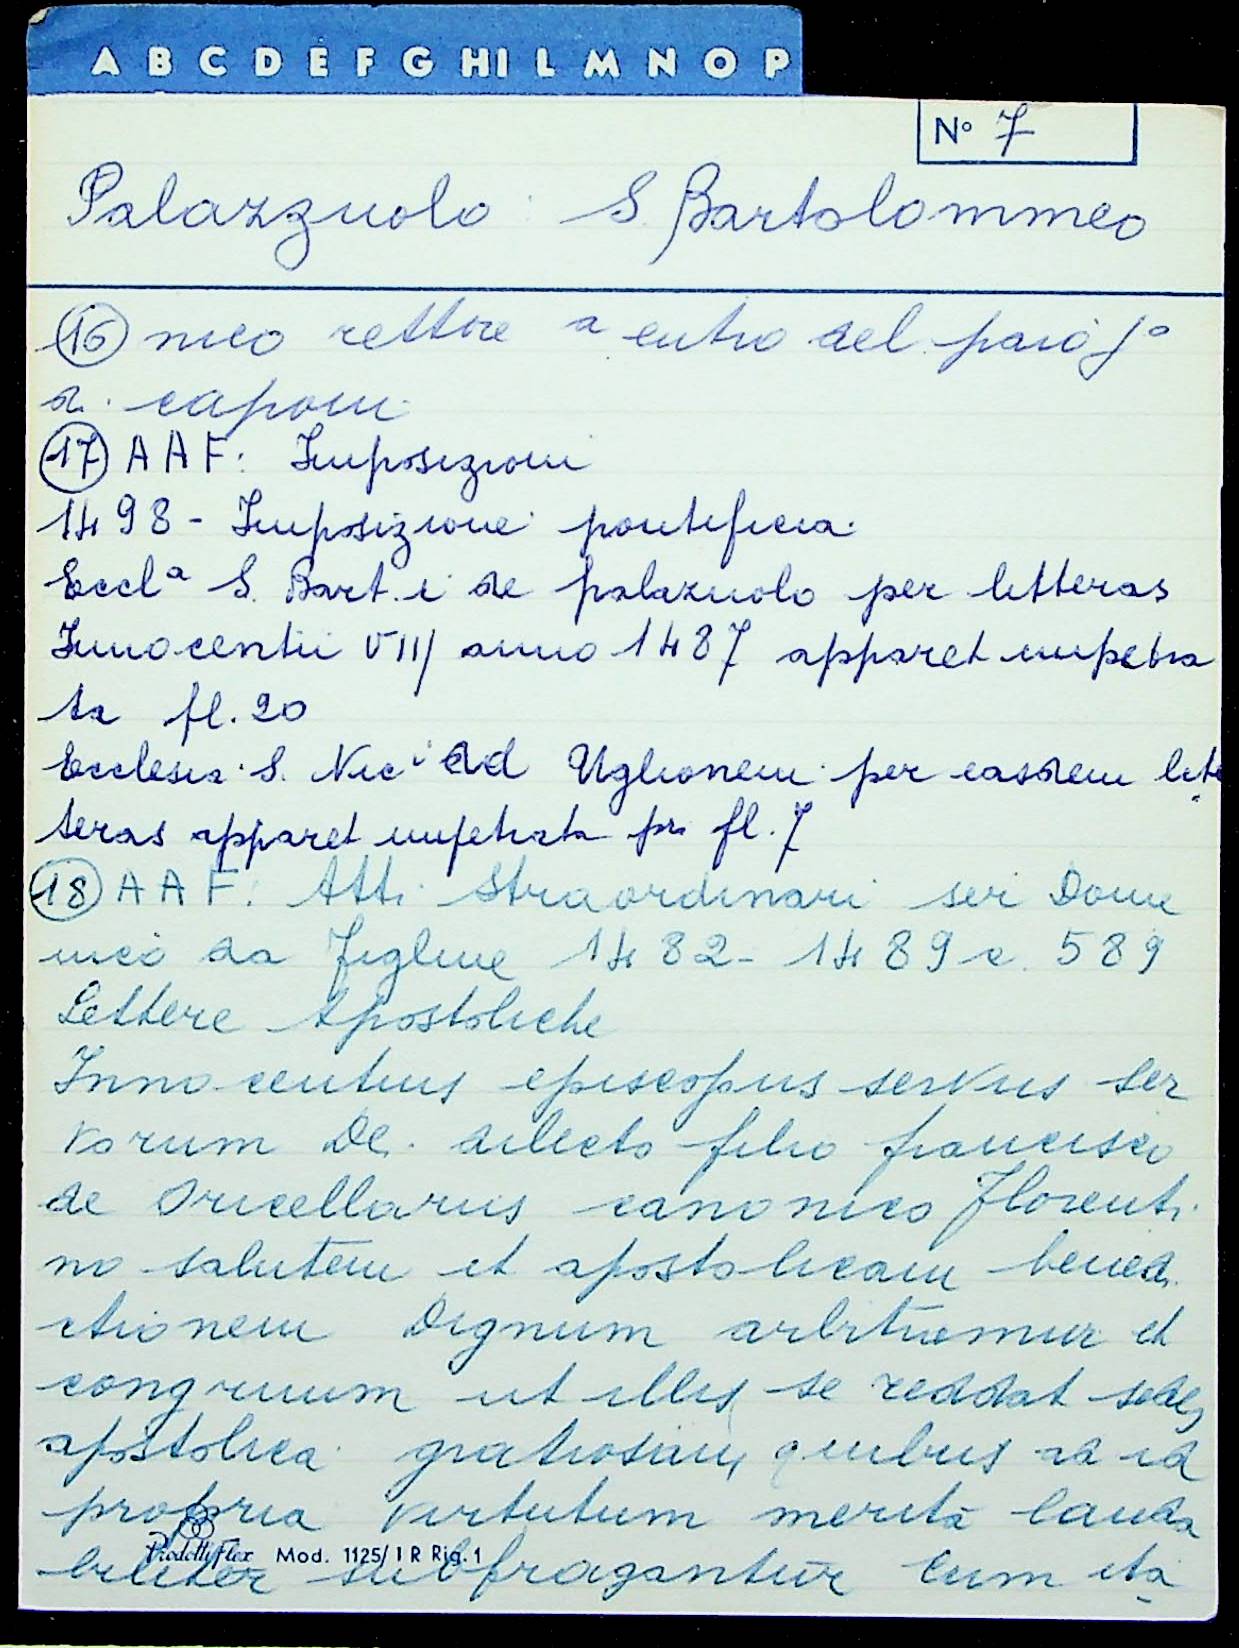 A B C D E F G HI L M N O P
N° 7
Palazzuolo : S. Bartolommeo
16 nico rettore a entro del paio j°
di capponi
17 A A F: Imposizioni
1498 - Imposizione pontificia
Eccl.a S. Bart.i de palazuolo per letteras
Innocentii VIII anno 1487 apparet impetra
ta fl. 20
Ecclesia S. Nic.i ad Uglionem per easdem lit
teras apparet impetrata pr fl. 7
18 A A F: Atti Straordinari ser Dome
nico da Figline 1482 - 1489 c. 589
Lettere Apostoliche
Innocentius episcopus servus ser
vorum Dei dilecto filio francisco
de Oricellariis canonico Florenti
no salutem et apostolicam bened.
ctionem Dignum arbitremur et
congruum ut illis se reddat sedes
apostolica gratiosam, quibus ad id
propria virtutum merita lauda
biliter subfragantur Cum ita
Prodotti Flex Mod. 1125/1 R Rig. 1